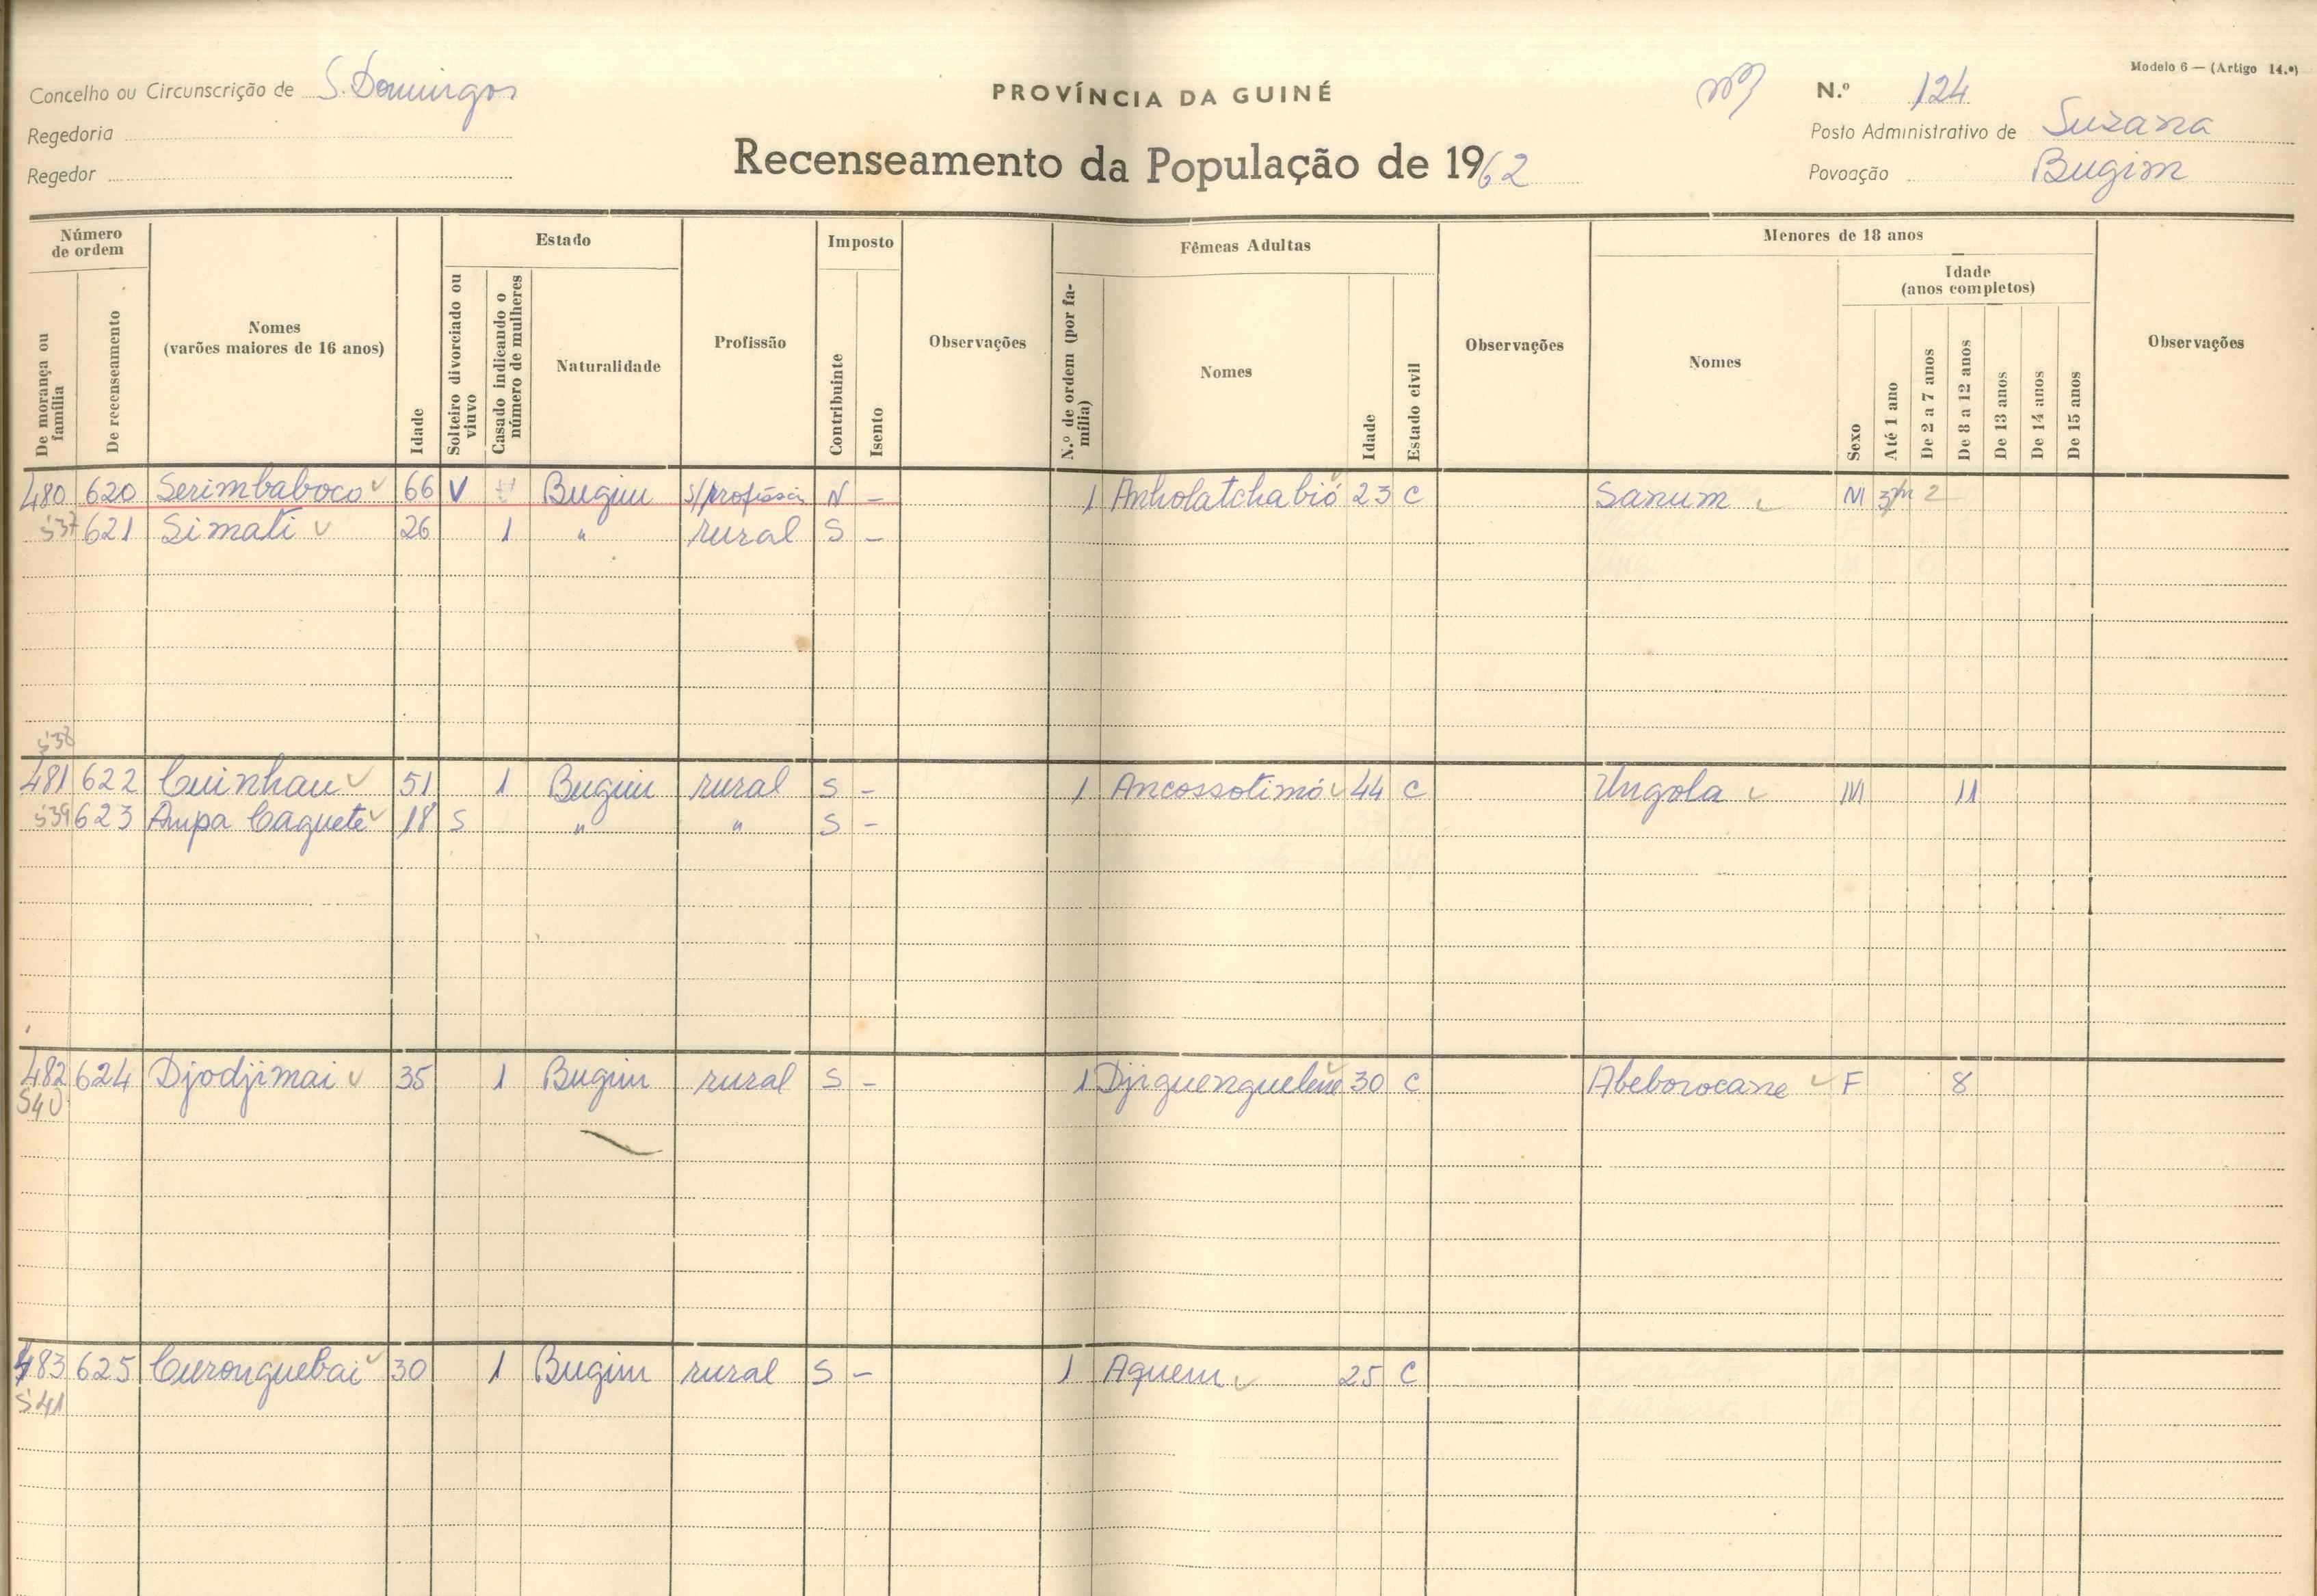 Modelo 6 — (Artigo 14.º)
Concelho ou Circunscrição de S. Domingos
PROVÍNCIA DA GUINÉ
N.º 124
Regedoria
Posto Administrativo de Suzana
Regedor
Recenseamento da População de 1962
Povoação Bugim
Número de ordem
De morança ou família
De recenseamento
Nomes (varões maiores de 16 anos)
Idade
Estado
Solteiro divorciado ou viuvo
Casado indicando o número de mulheres
Naturalidade
Profissão
Imposto
Contribuinte
Isento
Observações
Fêmeas Adultas
N.º de ordem (por família)
Nomes
Idade
Estado civil
Observações
Menores de 18 anos
Nomes
Sexo
Idade (anos completos)
Até 1 ano
De 2 a 7 anos
De 8 a 12 anos
De 13 anos
De 14 anos
De 15 anos
Observações
480 620 Serimbaboco 66 V Bugim s/profissão N - 1 Anholatchabió 23 C Sanum M 3/m 2
537 621 Simati 26 1 " rural S -
538
481 622 Cuinhau 51 1 Bugim rural S - 1 Ancossotimó 44 C Ungola M 11
539 623 Ampa Caquete 18 S " " S -
482 624 Djodjimai 35 1 Bugim rural S - 1 Djiguenguelene 30 C Abeborocane F 8
540
483 625 Curonguebai 30 1 Bugim rural S - 1 Aquem 25 C
541